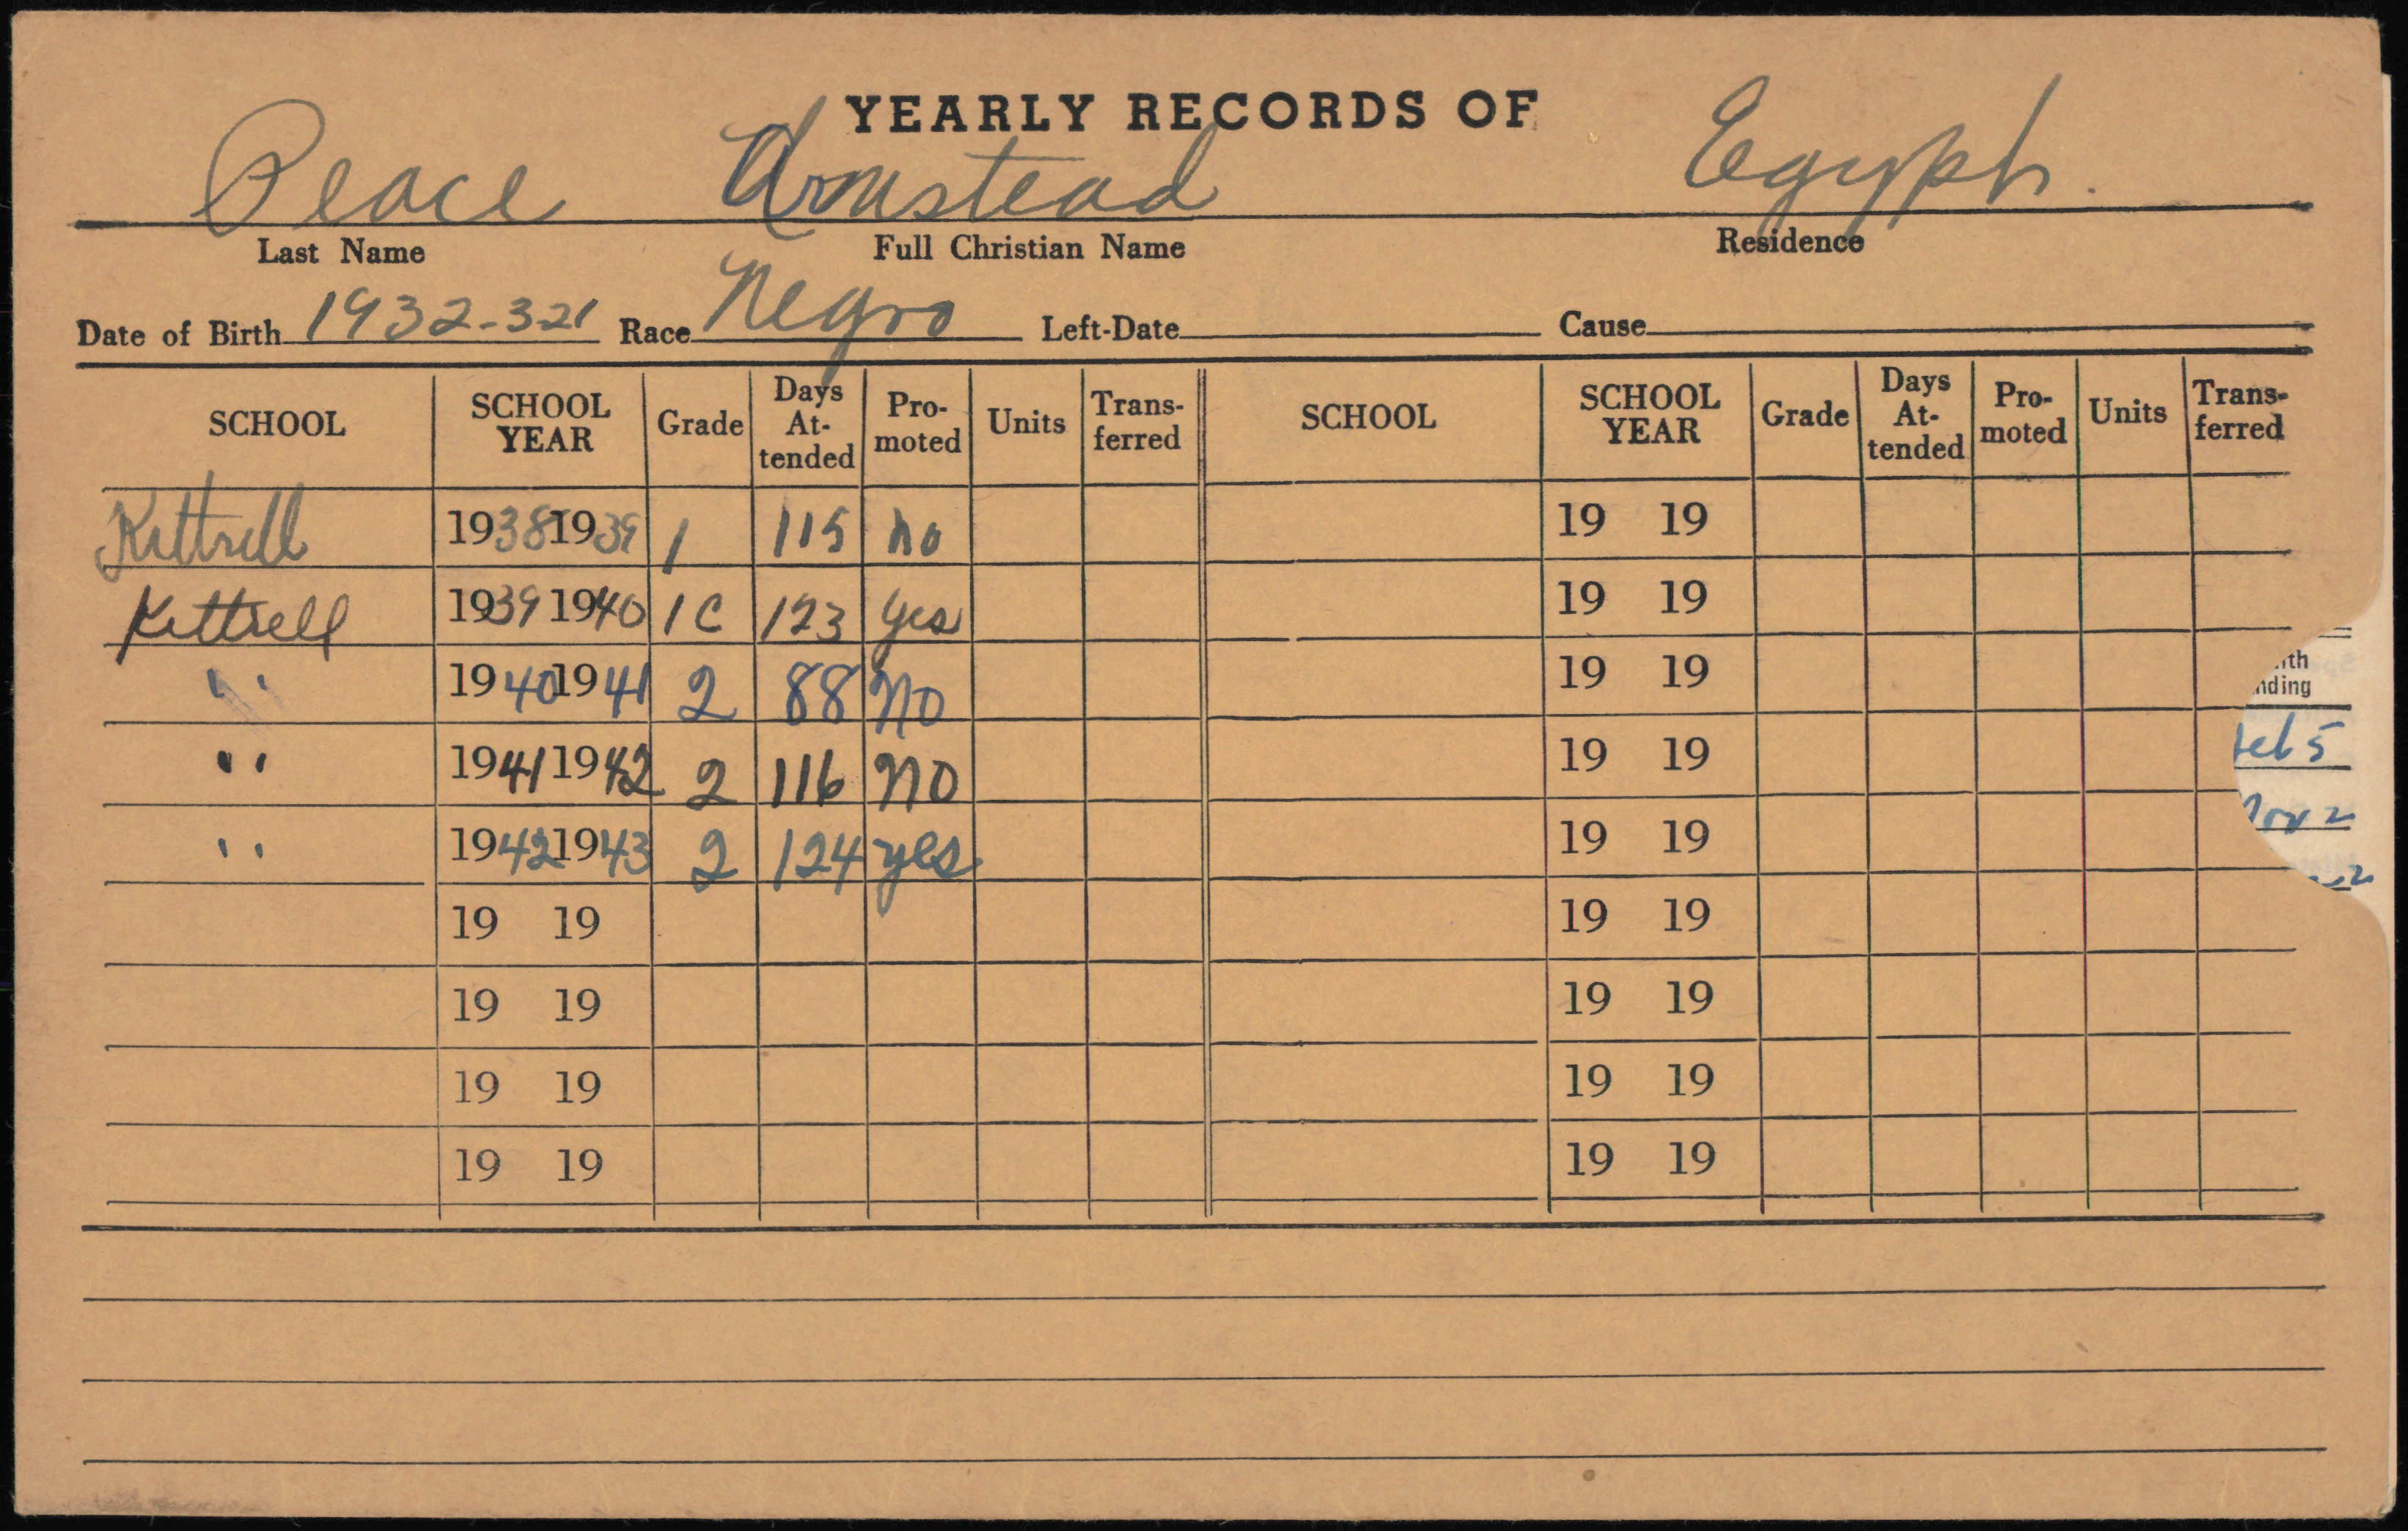 YEARLY RECORDS OF
Peace Armstead Egypt.
Last Name Full Christian Name Residence
Date of Birth 1932-3-21 Race Negro Left-Date Cause
SCHOOL SCHOOL YEAR Grade Days At-tended Pro-moted Units Trans-ferred SCHOOL SCHOOL YEAR Grade Days At-tended Pro-moted Units Trans-ferred
Kittrell 1938 1939 1 115 no 19 19
Kittrell 1939 1940 1C 123 yes 19 19
" 1940 1941 2 88 No 19 19
" 1941 1942 2 116 NO 19 19
" 1942 1943 2 124 yes 19 19
19 19 19 19
19 19 19 19
19 19 19 19
19 19 19 19
nding
5
2
2